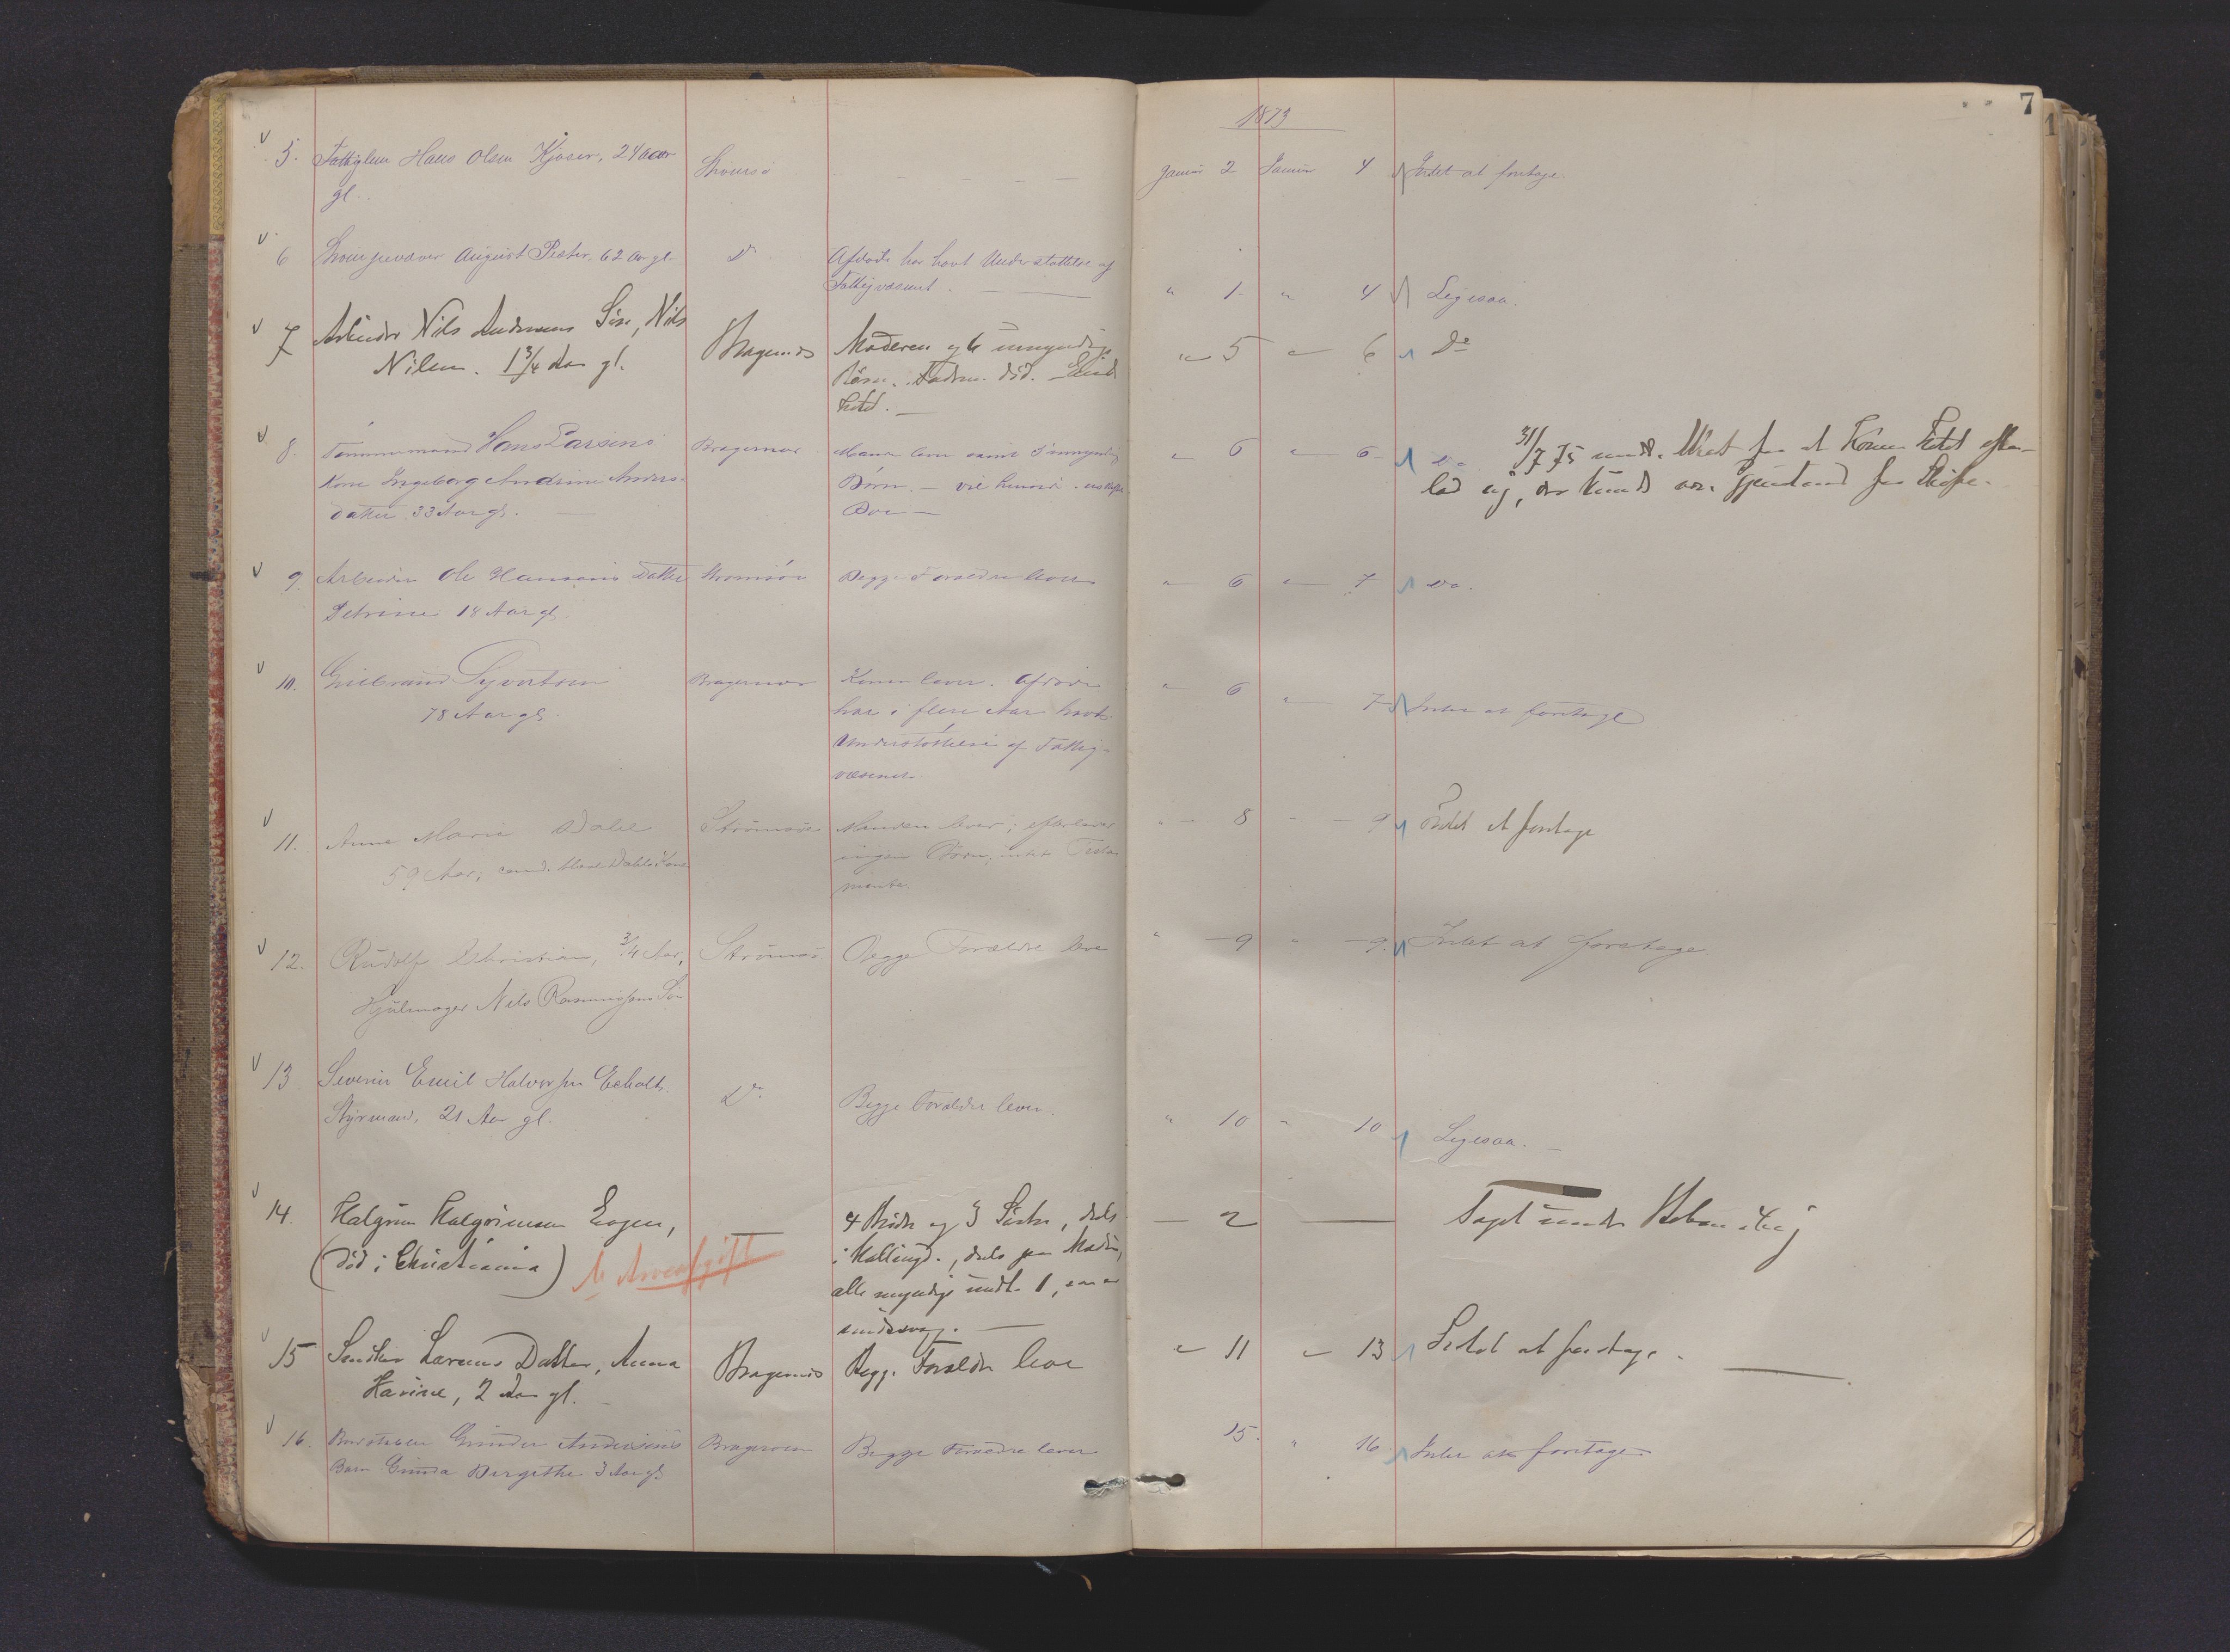 7
1873
5. Fattiglem Hans Olsen Kjøser, 24 aar
gl.
Strømsø
Januar 2 Januar 4 Intet at foretage.
6 August Peter, 62 Aar gl.
Do
Afdøde har havt Understøttelse af
Fattigvæsenet.
" 1 " 4 Ligesaa.
7 Arbeider Nils Andersens Søn, Nils
Nilsen. 1 3/4 Aar gl.
Bragernæs
Moderen og 6 umyndige
Børn. Faderen død.
Intet.
" 5 " 6 Do
8. Tømmermand Hans Larsens
Kone Ingeborg Andrine Anders-
datter 33 Aar gl.
Bragernæs
Manden lever samt 5 umyndige
Børn. - vil hensidde i uskiftet
Bo
" 6 " 6 Do 31/7 75 at Konen Intet efter-
lod sig, der kunde være Gjenstand for Skifte.
9. Arbeider Ole Hansens Datter
Petrine 18 Aar gl.
Strømsøe
Begge Forældre lever
" 6 " 7 Do.
10. Gulbrand Syvertsen
78 Aar gl.
Bragernæs
Konen lever. Afdøde
har i flere Aar havt
Understøttelse af Fattig-
væsenet
" 6 " 7 Intet at foretage
11. Anne Marie Dahl
59 Aar, Dahls Kone
Strømsøe
Manden lever; efterlader
ingen Børn, intet Testa-
mente.
" 8 " Intet at foretage
12. Rudolf Christian, 3/4 Aar,
Hjulmager Nils Rasmussens Søn
Strømsø.
Begge Forældre lever
" 9 " 9. Intet at foretage
13 Severin Emil Halvorsen Echolt.
Styrmand, 21 Aar gl.
Do.
Begge Forældre lever.
" 10 " 10 Ligesaa.
14. Halgrim Halgrimsen Engen,
(død i Christiania)
Arveafgift
4 Brødre og 3 Søstre, dels
i Hallingd., dels paa Modum,
alle myndige undt. 1, som er
— 2 — Taget under
15 Snedker Larsens Datter, Anna
Havine, 2 Aar gl.
Bragernæs
Begge Forældre lever
" 11 " 13 Intet at foretage.
16. Gunder Andersens
Barn Gunda Bergithe 3 Aar gl.
Bragernæs
Begge Forældre lever
15. " 16 Intet at foretage.